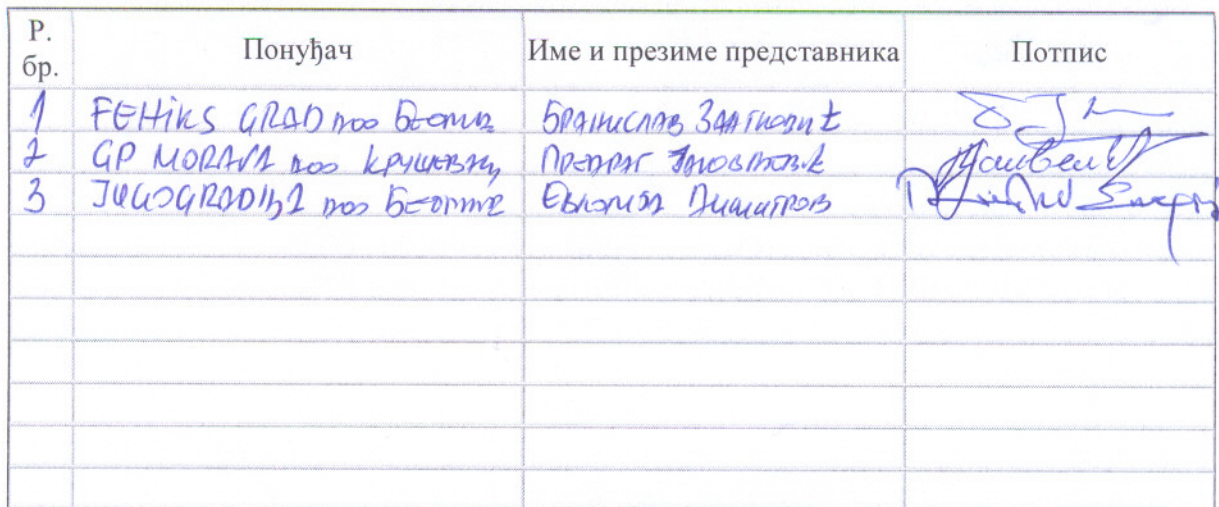 Р. бр. Понуђач Име и презиме представника Потпис
1 FEНiKS GRAD доо Београд БРАНИСЛАВ ЗЛАТКОВИЋ
2 GP MORAVA доо КРУШЕВАЦ ПРЕДРАГ
3 доо Београд ДИМИТРОВ